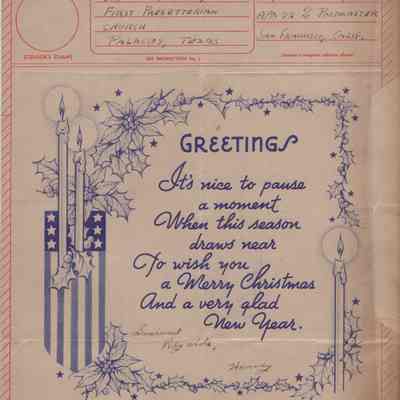 First Presbyterian
Church
Palacios, Texas
A.P.O. 72 % Postmaster
San Francisco, Calif.
GREETINGS
It's nice to pause
a moment
When this season
draws near
To wish you
a Merry Christmas
And a very glad
New Year.
Sincerest
Regards,